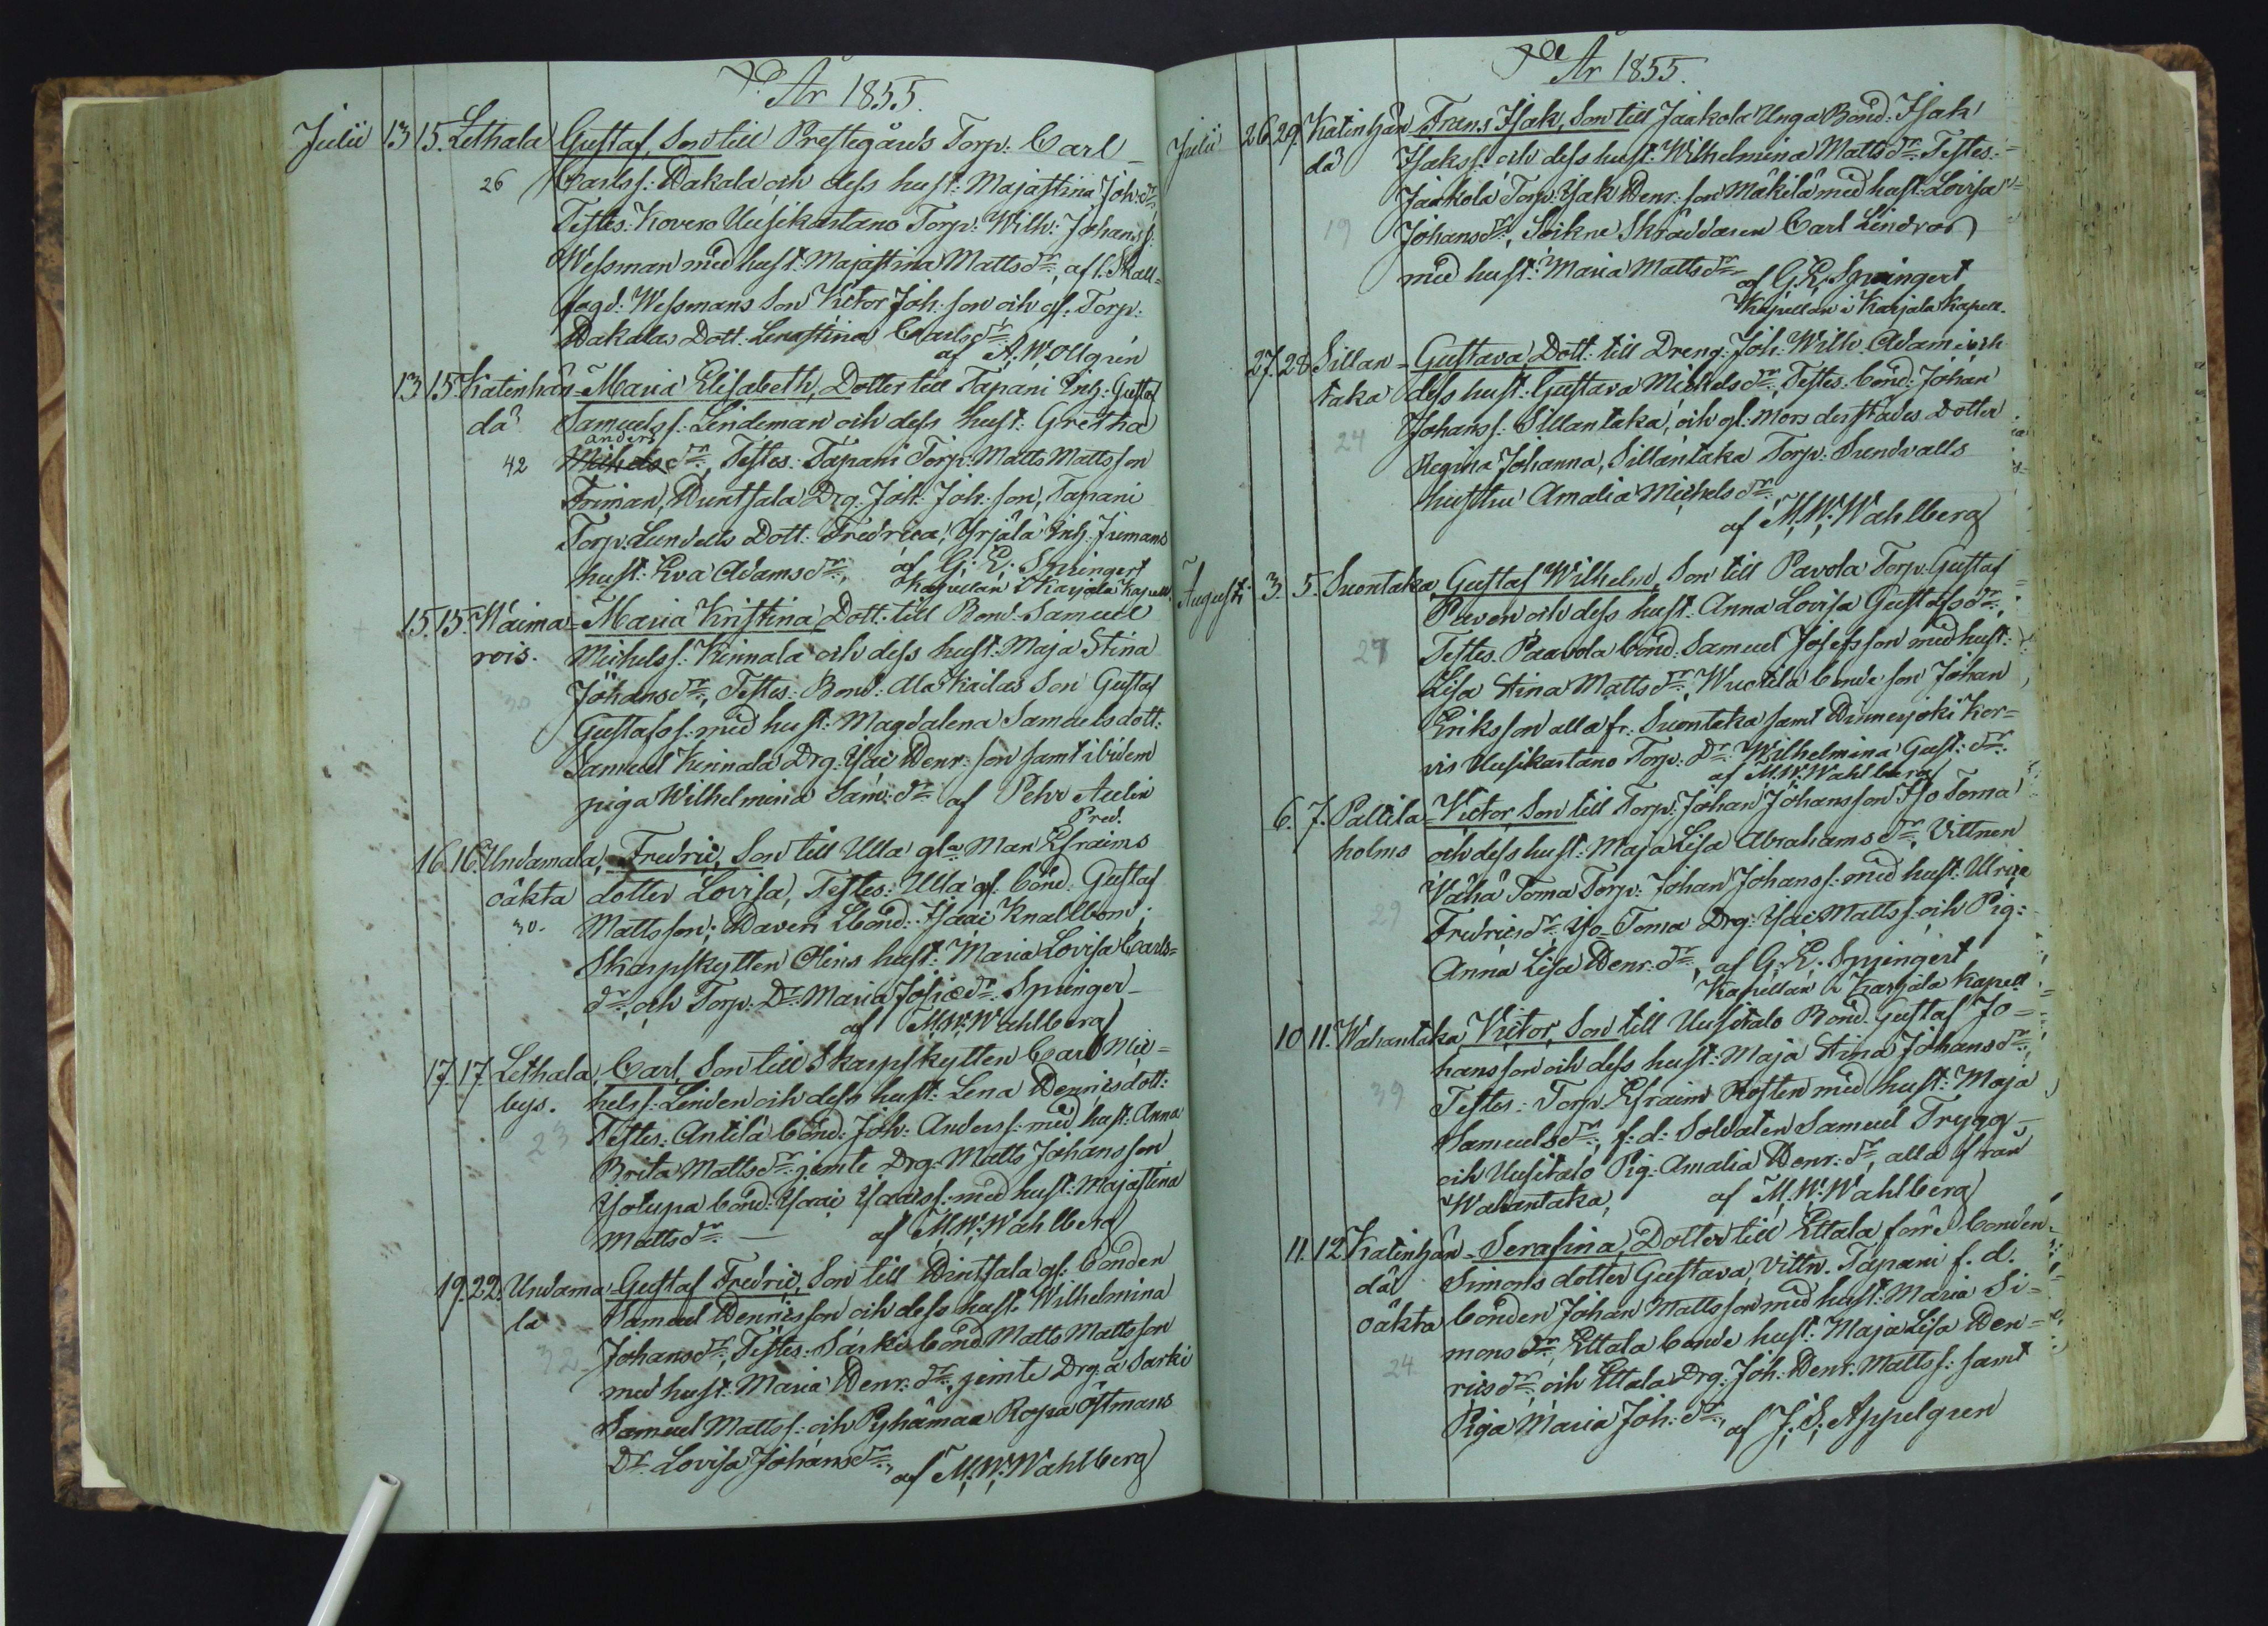 År 1855.
Julii 13 15. Lethala Gustaf, Son till Prestegårds Torp: Carl
26 Carlss: Hakala och dess hust: Majastina Joh: dr
Testes: Kovero Uusikartano Torp: Wilh: Johanss:
Wessman med hust: Majastina Matts dr, afl. Skall=
fogd: Wessmans Son Victor Joh: son och gl. Torp:
Hakalas Dott: Lenastina Carls dr
af A. W. Ollgrén
13 15. Katinhän= Maria Elisabeth, Dotter till Tapani Inh: Gustaf
dä Samuelss: Lindeman och dess hust: Gretha
anders
42 Michels dr, Testes: Tapani Torp: Matts Mattsson
Friman, Huntsala Drg. Joh: Joh: son, Tapani
Torp. Lundells Dott: Fredrica, Yrjälä Inh: Frimans
hust: Eva Adams dr, af G: E: Springert
Kapellan i Karjala Kapell.
15. 15. Waima= Maria Kristina Dott: till Bond: Samuel
rois. Michelss: Kinnala och dess hust: Maja Stina
30 Johans dr, Testes: Bond: Ala Kailas Son Gustaf
Gustafss: med hust: Magdalena Samuelsdott:
Samuel Kinnala Drg: Isac Henr: son samt ibidem
piga Wilhelmina Sam: dr af Pehr Aulin
Pred.
16. 16. Undamala, Fredric, Son till Ulla gla Man Efraims
oäkta dotter Lovisa, Testes: Ulla gl. bond: Gustaf
30. Mattsson; Haveri Lbond: Isaac Knallbom;
Skarpskytten Olins hust: Maria Lovisa Carls=
dr, och Torp: Dr Maria Josia dr Springer
af M. W. Wahlberg
17 17 Lethala, Carl, Son till Skarpskytten Carl Mic=
bys. helss: Linden och dess hust: Lena Henricsdott:
23 Testes: Antila bond: Joh: Anderss: med hust: Anna
Brita Matts dr jemte Drg: Matts Johansson
Isotupa bond: Isaac Isaacss: med hust: Majastina
Matts dr — af M. W. Wahlberg
19. 22. Undama= Gustaf Fredric, Son till Hintsala gl. bonden
la Samuel Henricsson och dess hust. Wilhelmina
32 Johans dr, Testes: Särki bond Matts Mattsson
med hust: Maria Henr: dr, jemte Drg: a Särki
Samuel Mattss: och Pyhämaa Ropa Östmans
Dr Lovisa Johans dr, af M. W. Wahlberg
År 1855.
Julii 26 29. Katinhän= Frans Isak, Son till Jaakola Unga Bond: Isak
dä Isakss: och dess hust: Wilhelmina Matts dr. Testes:
Jaakola Torp: Isak Henr: son Mäkilä med hust: Lovisa
19 Johans dr, Sockne Skräddaren Carl Lindroos
med hust: Maria Matts dr af G. E. Springert
Kapellan i Karjala Kapell.
27. 28 Sillan= Gustava Dott: till Dreng: Joh: Wilh. Adami och
taka dess hust: Gustava Michels dr, Testes. bond: Johan
24 Johanss: Sillantaka, och gl: Mors derstädes Dotter
Regina Johanna, Sillantaka Torp: Sundvalls
husthu Amalia Michels dr
af M. W. Wahlberg
Augusti 3. 5. Suontaka, Gustaf Wilhelm, Son till Pavola Torp: Gustaf
Paven och dess hust: Anna Lovisa Gustafs dr,
27 Testes. Paavola bond: Samuel Josefsson med hust:
Lisa Stina Matts dr, Wuotila bonde son Johan
Eriksson alla fr. Suontaka samt Hinnerjoki Kor=
vis Uusikartano Torp: Dr Wilhelmina Gust: dr.
af M. W. Wahlberg
6. 7. Paltila= Victor, Son till Torp: Johan Johansson Iso Toma
holms och dess hust: Maja Lisa Abrahams dr, Vittnen
Vähä Toma Torp: Johan Johanss: med hust: Ulrica
29 Fredrics dr. Iso-Toma Drg: Isac Mattss: och Pig:
Anna Lisa Henr: dr, af G. E. Springert
Kapellan i Karjala Kapell
10 11. Wahantaka, Victor, Son till Uusitalo Bond. Gustaf Jo=
hansson och dess hust: Maja Stina Johans dr,
39 Testes: Torp. Efraim Rosten med hust: Maja
Samuels dr, f: d: Soldaten Samuel Trygg
och Uusitalo Pig: Amalia Henr: dr, alla från
Wahantaka, af M. W. Wahlberg
11. 12 Katinhän= Serafina, Dotter till Ettala förre bonden
dä Simons dotter Gustava, Vittn. Tapani f. d.
oäkta bonden Johan Mattsson med hust: Maria Si=
mons dr, Ettala bonde hust: Maja Lisa Hen=
24 rics dr och Ettala Drg: Joh: Henr: Mattss: samt
Piga Maria Joh: dr, af J. S. Appelgren